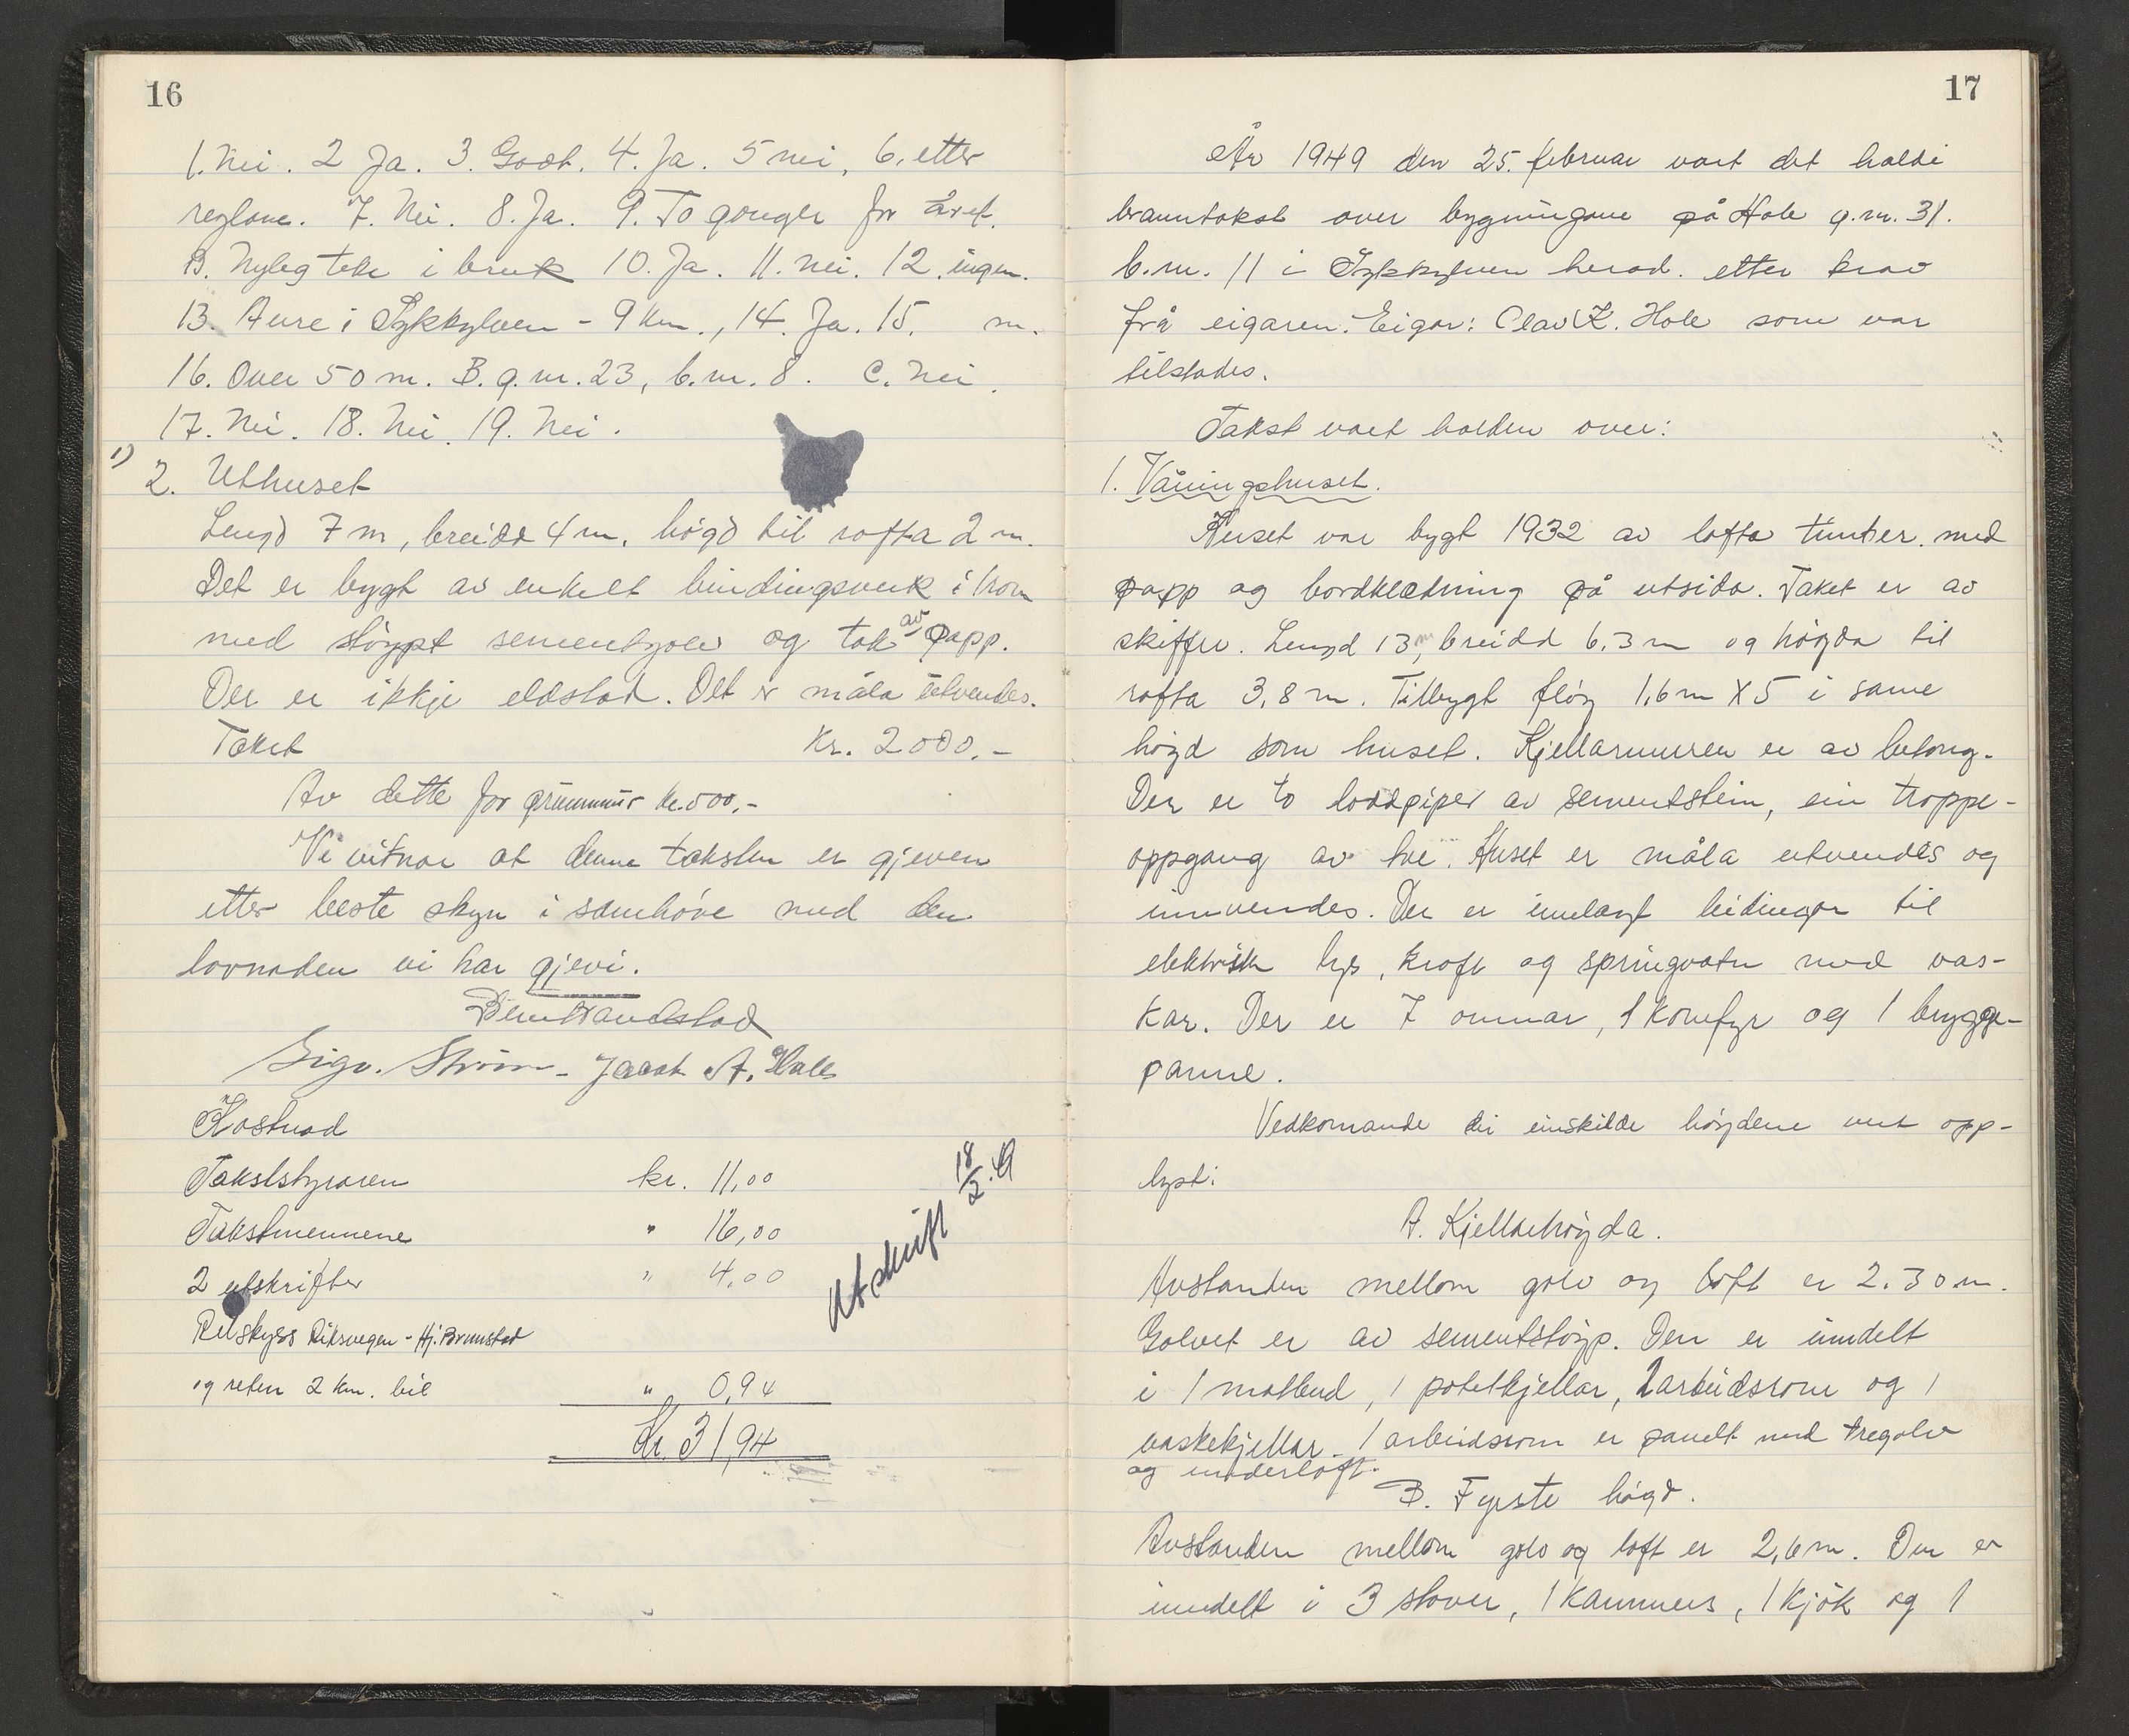 16
1. Nei. 2 Ja. 3. Godt. 4. Ja. 5 nei, 6. etter
reglane. 7. Nei. 8. Ja. 9. To gonger for året.
B. Nyleg teke i bruk 10. Ja. 11. nei. 12. ingen.
13. Aure i Sykkylven - 9 km., 14. Ja. 15. m.
16. Over 50 m. B. g.nr. 23, b.nr. 8. C. Nei.
17. Nei. 18. Nei. 19. Nei.
1)
2. Uthuset
Lengd 7 m, breidd 4 m, högd til rofta 2 m.
Det er bygt av enkelt bindingsverk i
med stöypt sementgolv og tak av papp.
Der er ikkje eldstad. Det er måla utvendes.
Taket Kr. 2000.-
Av dette for grunnmur kr. 500,-
Vi vitnar at denne taksten er gjeven
etter beste skyn i samhöve med den
lovnaden vi har gjevi.
Sigv. Ström - Jacob A. Hole
Kostnad
Takststyraren kr. 11,00
Takstmennene " 16,00
2 utskrifter " 4,00
Reiskyss Riksvegen - Hj. Brunstad
og reten 2 km. bil " 0,94
Kr. 31,94
Utskrift 18/2.49
17
År 1949 den 25. februar vart det haldi
branntakst over bygningane på Hole g.nr. 31.
b.nr. 11 i Sykkylven herad. etter krav
frå eigaren. Eigar: Olav K. Hole som var
tilstades.
Takst vart halden over:
1. Våningshuset.
Huset var bygt 1932 av lafta timber. med
papp og bordklædning på utsida. Taket er av
skiffer. Lengd 13 m, breidd 6.3 m og högda til
rofta 3,8 m. Tilbygt flöy 1,6 m X 5 i same
högd som huset. Kjellarmuren er av betong.
Der er to loddpiper av sementstein, ein trappe-
oppgang av tre. Huset er måla utvendes og
innvendes. Der er innlagt leidingar til
elektrisk lys, kraft og springvatn med vas-
kar. Der er 7 omnar, 1 komfyr og 1 brygge-
panne.
Vedkomande dei einskilde högdene vert opp-
lyst:
A. Kjellarhögda.
Avstanden mellom golv og loft er 2.30 m.
Golvet er av sementstöyp. Den er inndelt
i 1 matbud, 1 potetkjellar, 2 arbeidsrom og 1
vaskekjellar - 1 arbeidsrom er panelt med tregolv
og underloft.
B. Fyrste högd.
Avstanden mellom golv og loft er 2,6 m. Den er
inndelt i 3 stover, 1 kammers, 1 kjök og 1